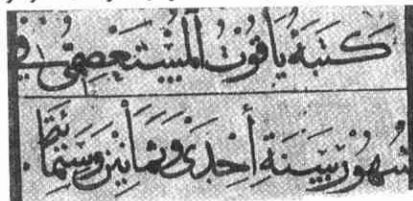 كَتَبَهُ يَاقُوتُ الْمُسْتَعْصِمِيُّ فِي
شُهُورِ سَنَةِ أَحِدَىْ وَثَمَانِيْنَ وَسِتِّمَائَةٍ